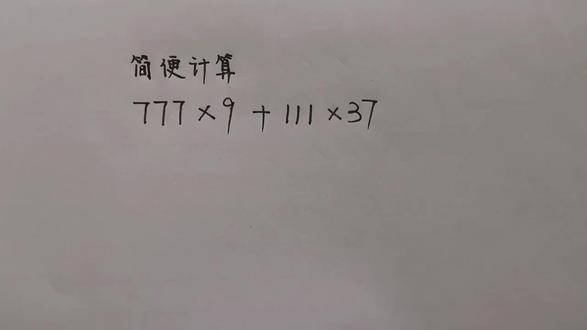 简便计算
777×9+111×37